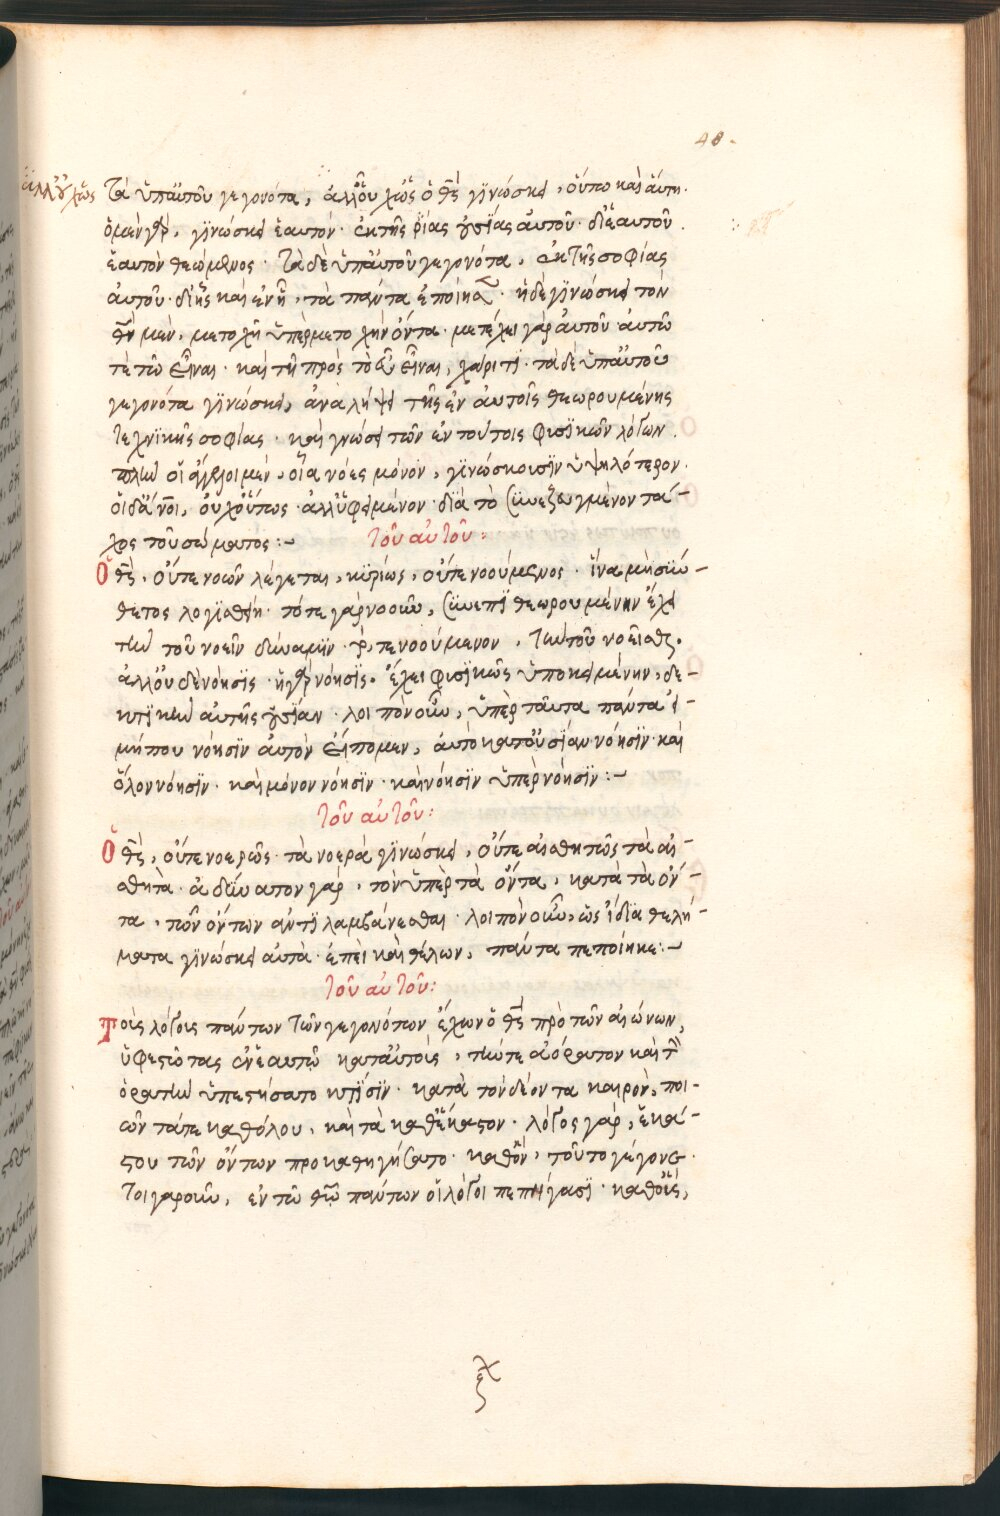 48.
ἀλλ' οὐχ ὡς
τὰ ὑπ' αὐτοῦ γεγονότα, ἀλλ' οὐχ ὡς ὁ θς γϊνώσκει, οὕτω καὶ αὕτη.
ὁ μὲν γὰρ, γϊνώσκει ἑαυτὸν· ἐκ τῆς μακαρίας οὐσίας αὐτοῦ· δι' ἑαυτοῦ
ἑαυτὸν θεώμενος· τὰ δὲ ὑπ' αὐτοῦ γεγονότα, ἐκ τῆς σοφίας
αὐτοῦ· δι' ἧς καὶ ἐν ᾗ, τὰ πάντα ἐποίησε· ἡ δὲ γϊνώσκει τὸν
θν μὲν, μετοχῇ ὑπὲρ μετοχὴν ὄντα· μετέχει γὰρ αὐτοῦ αὐτῶ
τὲ τῶ εἶναι· καὶ τῇ πρὸς τὸ εὖ εἶναι, χάριτϊ· τὰ δὲ ὑπ' αὐτοῦ
γεγονότα γϊνώσκει, ἀναλήψει τῆς ἐν αὐτοῖς θεωρουμένης
τεχνϊκῆς σοφίας· καὶ γνώσει τῶν ἐν τούτοις φυσϊκῶν λόγων.
πλὴν οἱ ἄγγελοι μὲν, οἷα νόες μόνον, γϊνώσκουσϊν ὑψηλότερον·
οἱ δ' ἄνοι, οὐχ οὕτως· ἀλλ' ὑφειμένον· διὰ τὸ συνεζευγμένον τά-
χος τοῦ σώματος:—
τοῦ αὐτοῦ:
Ὁ θς, οὔτε νοῶν λέγεται, κϋρίως, οὔτε νοούμενος· ἵνα μὴ σύν-
θετος λογϊσθείη· τότε γὰρ νοοῦν, συνεπϊθεωρουμένην ἔχει
τὴν τοῦ νοεῖν δύναμϊν· τό, τε νοούμενον, τὴν τοῦ νοεῖσθαι.
ἀλλ' οὐδὲ νόησϊς· ἡ γὰρ νόησϊς. ἔχει φυσϊκῶς ὑποκειμένην, δε-
κτϊκὴν αὐτῆς οὐσίαν· λοιπὸν οὖν, ὑπὲρ ταῦτα πάντα· εἰ
μήπου νόησϊν αὐτὸν εἴπομεν, αὐτὸ κατ' οὐσίαν νόησϊν· καὶ
ὅλον νόησϊν· καὶ μόνον νόησϊν· καὶ νόησϊν ὑπὲρ νόησϊν:—
τοῦ αὐτοῦ:
Ὁ θς, οὔτε νοερῶς· τὰ νοερὰ γϊνώσκει, οὔτε αἰσθητῶς τὰ αἰ-
σθητά· ἀδύνατον γὰρ, τὸν ὑπὲρ τὰ ὄντα, κατὰ τὰ ὄν-
τα, τῶν ὄντων ἀντϊλαμβάνεσθαι· λοιπὸν οὖν, ὡς ἴδϊα θελή-
ματα γϊνώσκει αὐτά· ἐπεὶ καὶ θέλων, πάντα πεποίηκε:—
τοῦ αὐτοῦ:
Τοὺς λόγους πάντων τῶν γεγονότων ἔχων ὁ θς πρὸ τῶν αἰώνων,
ὑφεστῶτας ἐν ἑαυτῷ κατ' αὐτοὺς, τήν τε ἀόρατον καὶ τὴν
ὁρατὴν ὑπεστήσατο κτίσϊν· κατὰ τὸν δέοντα καιρὸν, ποι-
ῶν τά τε καθόλου, καὶ τὰ καθ' ἕκαστον· λόγος γὰρ, ἑκά-
στου τῶν ὄντων προκαθηγήσατο· καθ' ὃν, τοῦτο γέγονε·
τοιγαροῦν, ἐν τῶ θῶ πάντων οἱ λόγοι πεπήγασϊ· καθ' οὓς,